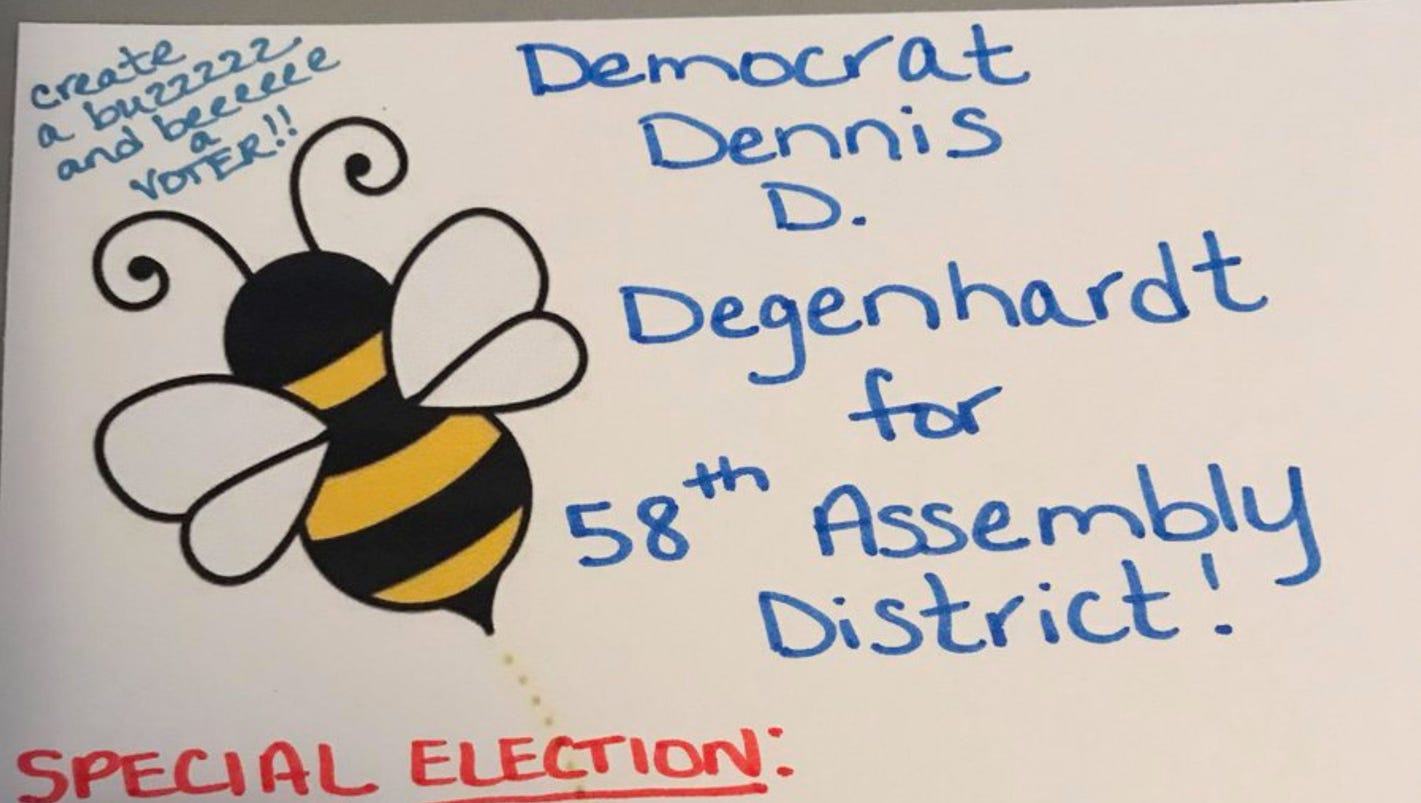 create
a buzzzzz
and beeeeee
a
VOTER!!
Democrat
Dennis
D.
Degenhardt
for
58th Assembly
District!
SPECIAL ELECTION: